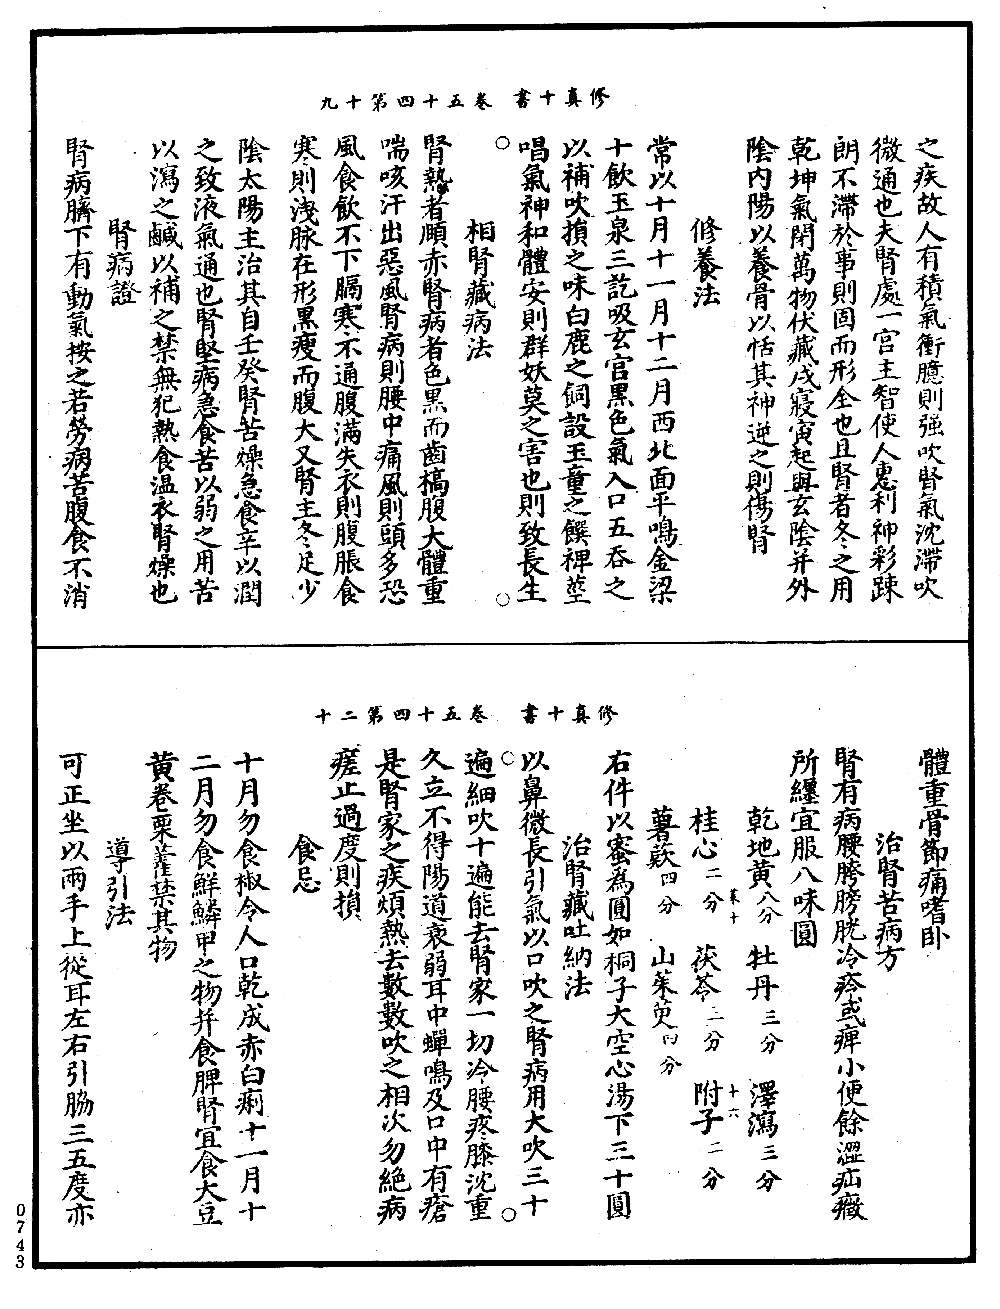 修真十書　卷五十四第十九
之疾故人有積氣衝臆則強吹腎氣沈滯吹
微通也夫腎處一宮主智使人惠利神彩踈
朗不滯於事則固而形全也且腎者冬之用
乾坤氣閉萬物伏藏戌寢寅起與玄陰并外
陰内陽以養骨以恬其神逆之則傷腎
修養法
常以十月十一月十二月西北面平鳴金梁
十飲玉泉三訖吸玄宮黑色氣入口五吞之
以補吹損之味白鹿之飼設玉童之饌裨莖
唱氣神和體安則群妖莫之害也則致長生
○　相腎藏病法　○
腎熱者頤赤腎病者色黑而齒槁腹大體重
喘咳汗出惡風腎病則腰中痛風則頭多恐
風食飲不下膈寒不通腹滿失衣則腹脹食
寒則洩脉在形黑瘦而腹大又腎主冬足少
陰太陽主治其自壬癸腎苦燥急食辛以潤
之致液氣通也腎堅病急食苦以弱之用苦
以瀉之鹹以補之禁無犯熱食温衣腎燥也
腎病證
腎病臍下有動氣按之若勞病苦腹食不消
修真十書　卷五十四第二十
體重骨節痛嗜卧
治腎苦病方
腎有病腰胯膀胱冷疼或痺小便餘澀疝癥
所纏宜服八味圓
乾地黃八分　牡丹三分　澤瀉三分
菜十　十六
桂心二分　茯苓二分　附子二分
薯蕷四分　山茱萸四分
右件以蜜為圓如桐子大空心湯下三十圓
治腎藏吐納法
以鼻微長引氣以口吹之腎病用大吹三十
○　○
遍細吹十遍能去腎家一切冷腰疼膝沈重
久立不得陽道衰弱耳中蟬鳴及口中有瘡
是腎家之疾煩熱去數數吹之相次勿絶病
瘥止過度則損
食忌
十月勿食椒令人口乾成赤白痢十一月十
二月勿食鮮鱗甲之物并食脾腎宜食大豆
黃卷栗藿禁其物
導引法
可正坐以兩手上從耳左右引脇三五度亦
0743